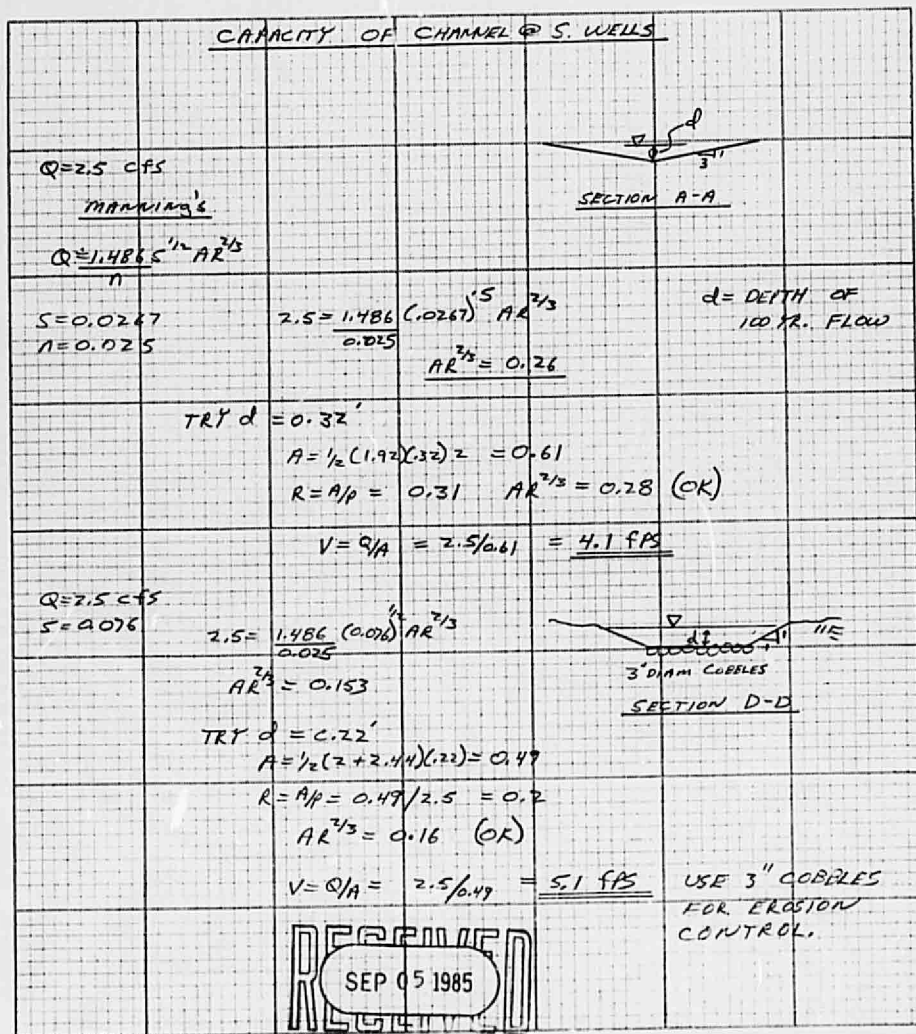 CAPACITY OF CHANNEL @ S. WELLS
d
3 1
SECTION A-A
Q=2.5 cfs
MANNING'S
Q=1.486/n S^1/2 AR^2/3
d= DEPTH OF
100 YR. FLOW
S=0.0267
n=0.025
2.5= 1.486/0.025 (.0267)^.5 AR^2/3
AR^2/3= 0.26
TRY d = 0.32'
A= 1/2 (1.92)(.32) 2 = 0.61
R= A/p = 0.31 AR^2/3 = 0.28 (OK)
V= Q/A = 2.5/0.61 = 4.1 fps
Q=2.5 cfs
S=0.076
2.5= 1.486/0.025 (0.076)^1/2 AR^2/3
AR^2/3 = 0.153
d
1
1
3" DIAM COBBLES
SECTION D-D
TRY d = 0.22'
A= 1/2 (2+2.44)(.22)= 0.49
R= A/p = 0.49/2.5 = 0.2
AR^2/3 = 0.16 (OK)
V= Q/A = 2.5/0.49 = 5.1 fps
USE 3" COBBLES
FOR EROSION
CONTROL.
RECEIVED
SEP 05 1985